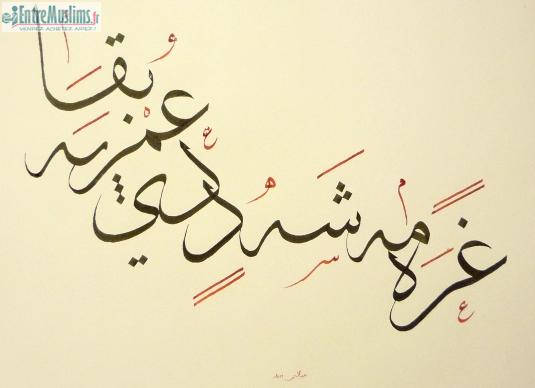 EntreMuslims.fr
VENDEZ ACHETEZ AIMEZ !
غَرَّه مه شَه د دي عمر په بقا